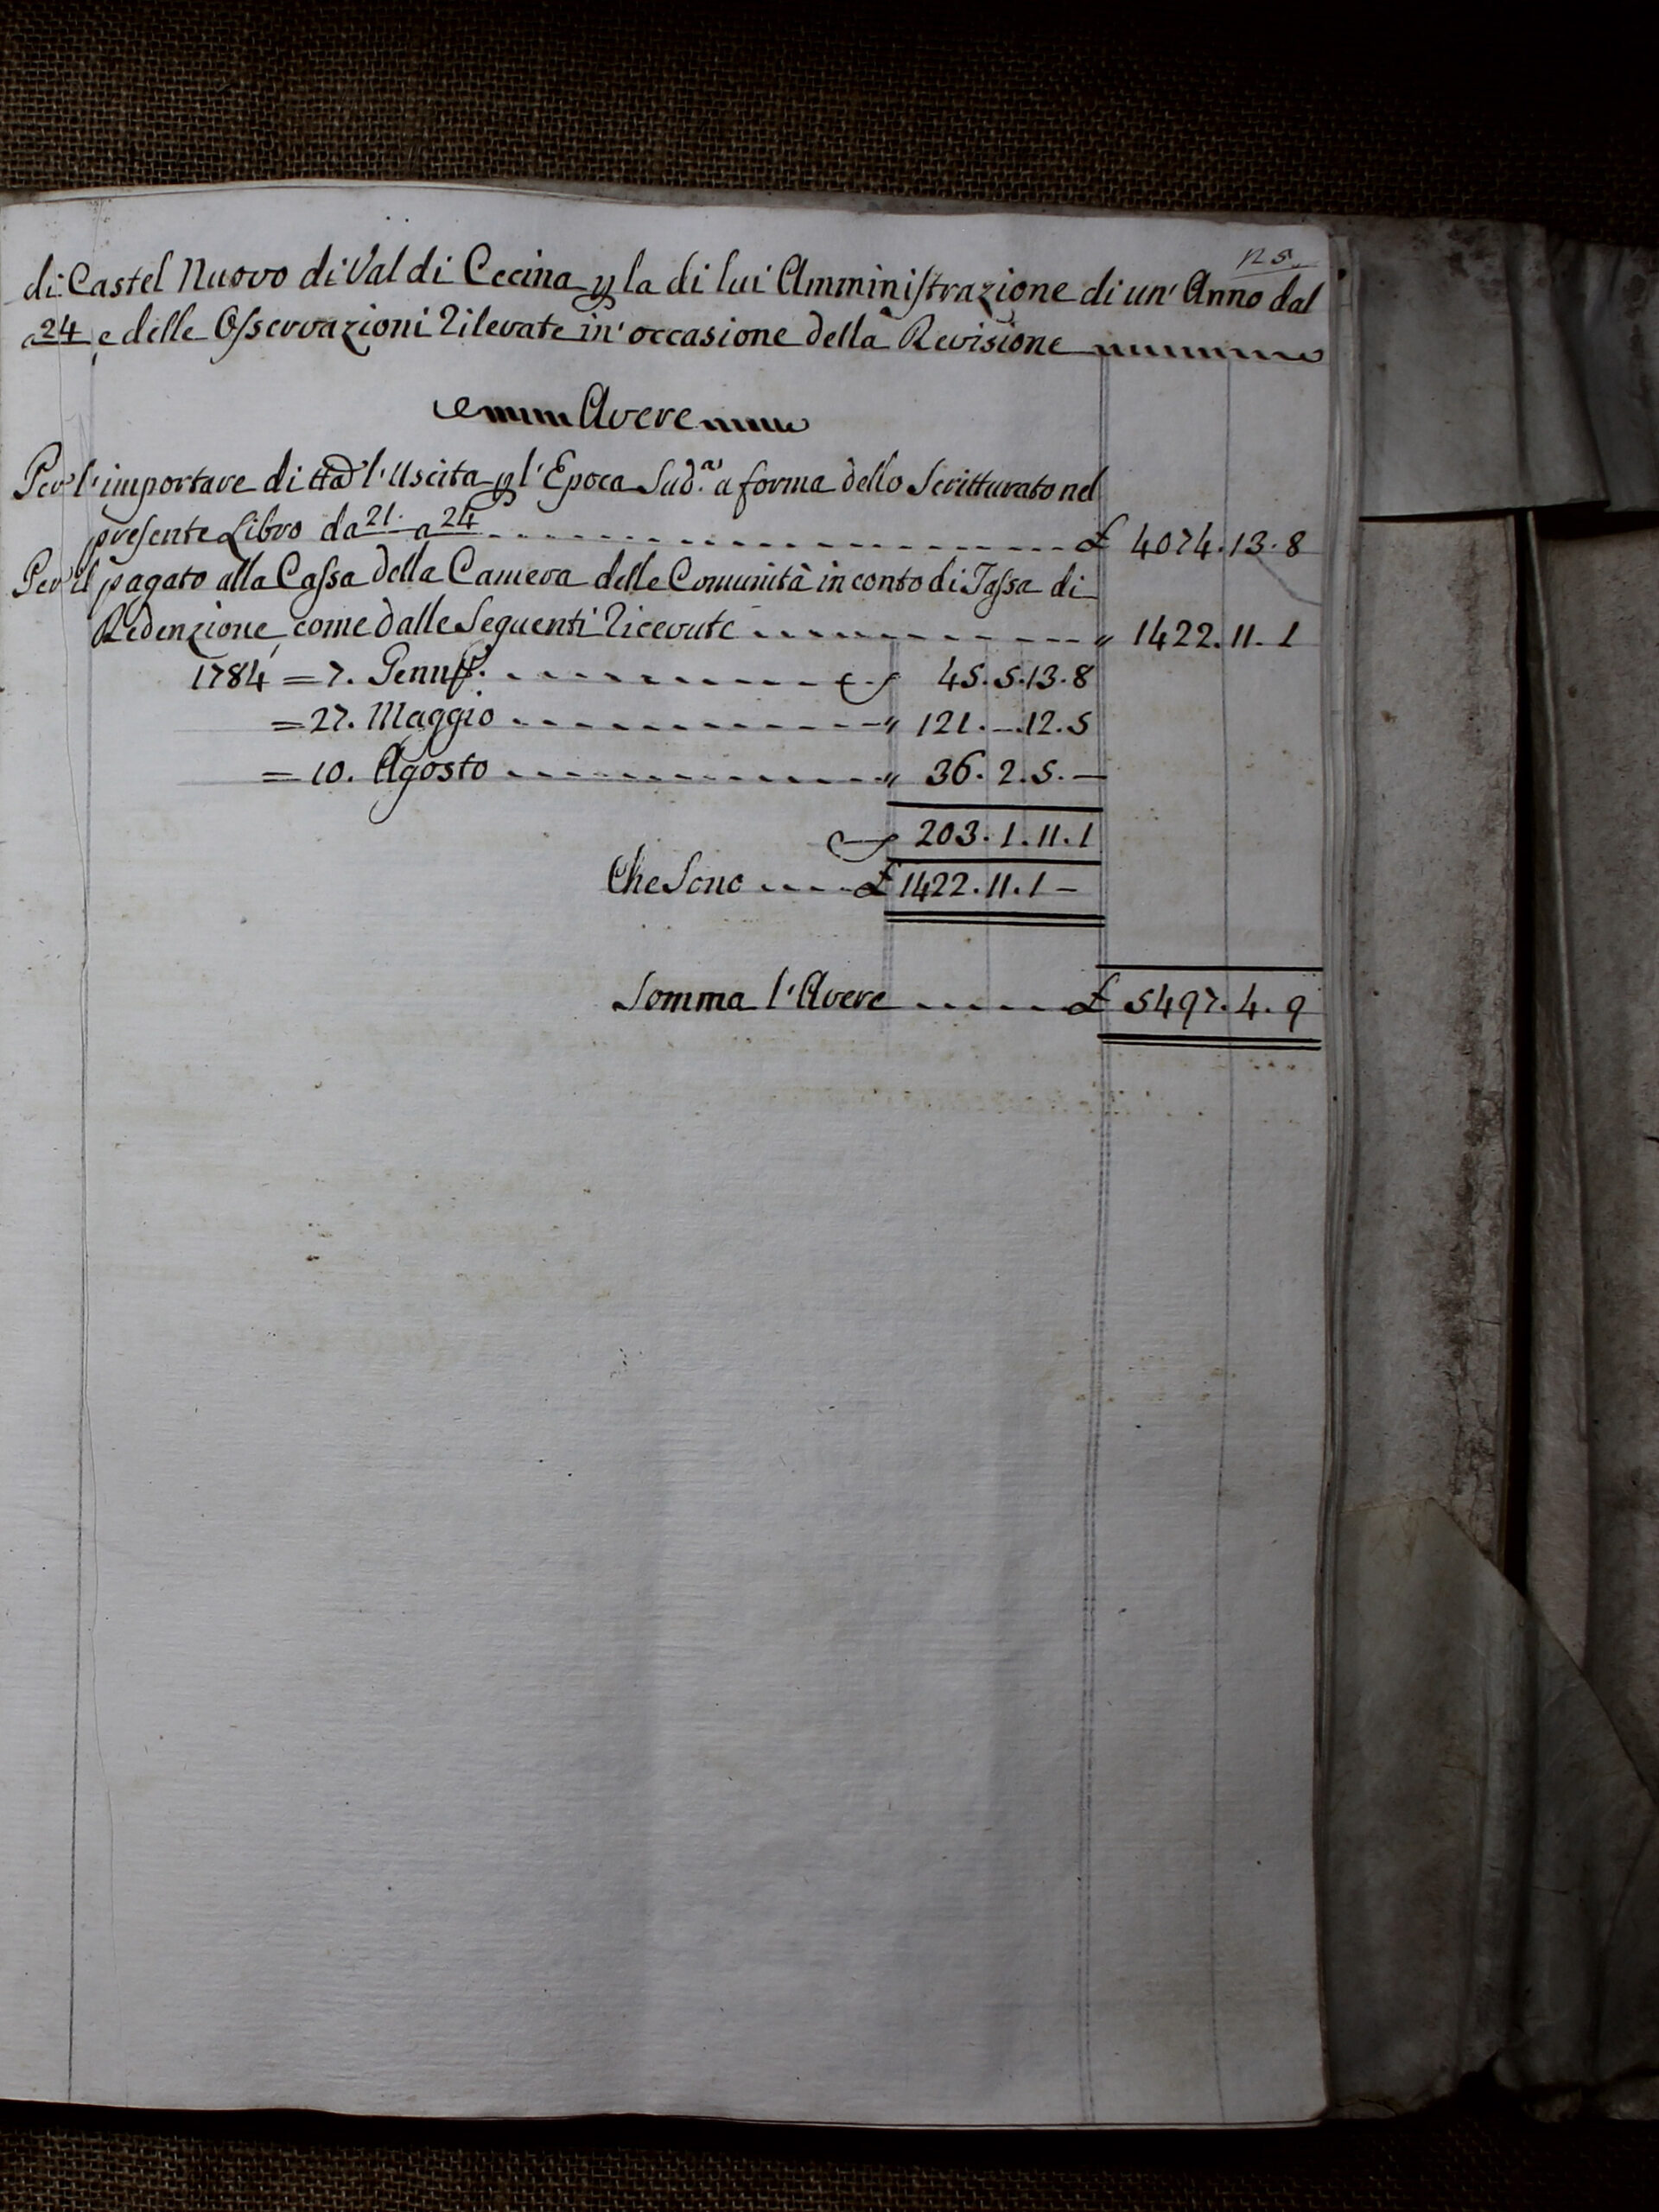 125.
di Castel Nuovo di Val di Cecina p la di lui Amministrazione di un' Anno dal
a 24 e delle Osservazioni rilevate in' occasione della Revisione
Avere
Per l'importare di tta l'Uscita p l'Epoca Sud.ᵃ a forma dello Scritturato nel
presente Libro da 21. a 24 - - - £ 4074.13.8
Per il pagato alla Cassa della Camera delle Comunità in conto di Tassa di
Redenzione, come dalle Seguenti ricevute - - - „ 1422.11.1
1784 = 7. - - - 45.5.13.8
= 27. Maggio - - - „ 121.—.12.5
= 10. Agosto - - - „ 36.2.5.—
203.1.11.1
Che Sono - - - £ 1422.11.1 —
Somma l'Avere - - - £ 5497.4.9